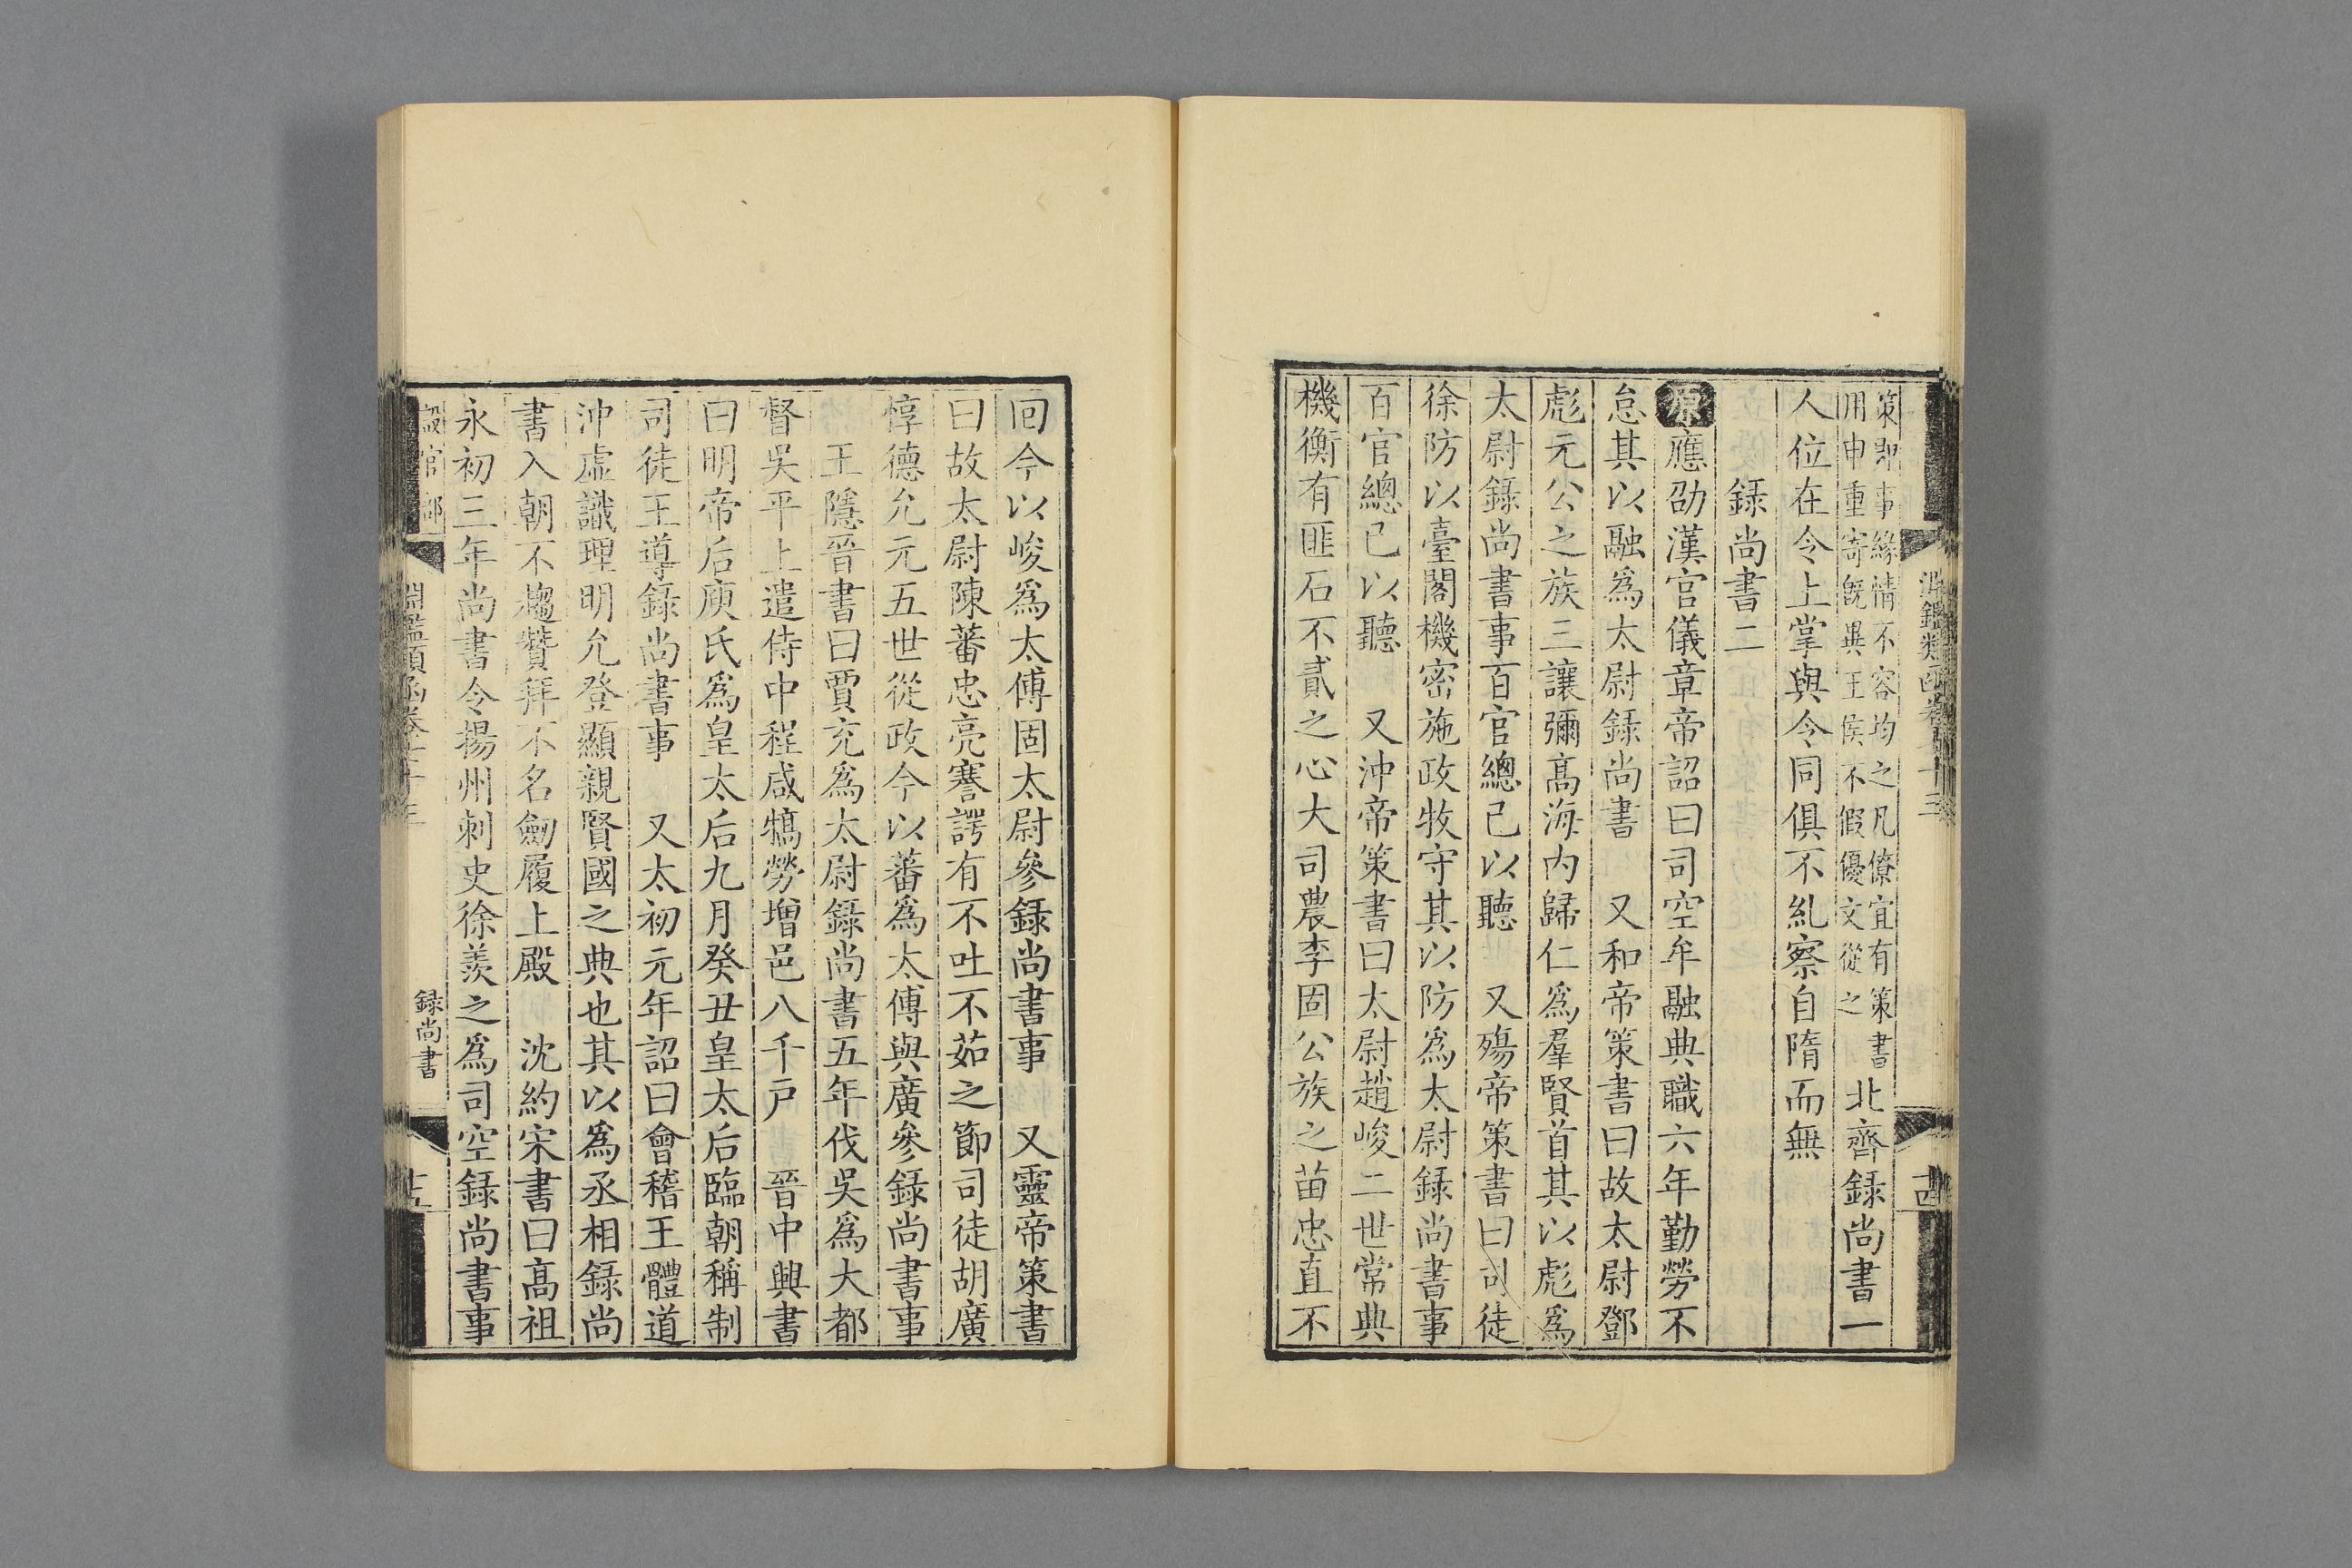 策即事緣情不容均之凡僚宜有策書
用申重寄旣異王侯不假優文從之
北齊錄尚書一
人位在令上掌與令同俱不糺察自隋而無
錄尚書二
原應劭漢官儀章帝詔曰司空牟融典職六年勤勞不
怠其以融爲太尉錄尚書　又和帝策書曰故太尉鄧
彪元公之族三讓彌高海內歸仁爲羣賢首其以彪爲
太尉錄尚書事百官總己以聽　又殤帝策書曰司徒
徐防以臺閣機密施政牧守其以防爲太尉錄尚書事
百官總已以聽　又沖帝策書曰太尉趙峻二世常典
機衡有匪石不貳之心大司農李固公族之苗忠直不
回今以峻爲太傅固太尉參錄尚書事　又靈帝策書
曰故太尉陳蕃忠亮謇諤有不吐不茹之節司徒胡廣
惇德允元五世從政今以蕃爲太傅與廣參錄尚書事
王隱晉書曰賈充爲太尉錄尚書五年伐吳爲大都
督吳平上遣侍中程咸犒勞增邑八千戶　晉中興書
曰明帝后庾氏爲皇太后九月癸丑皇太后臨朝稱制
司徒王導錄尚書事　又太初元年詔曰會稽王體道
沖虛識理明允登顯親賢國之典也其以爲丞相錄尚
書入朝不趨贊拜不名劒履上殿　沈約宋書曰高祖
永初三年尚書令揚州刺史徐羨之爲司空錄尚書事
錄尚書